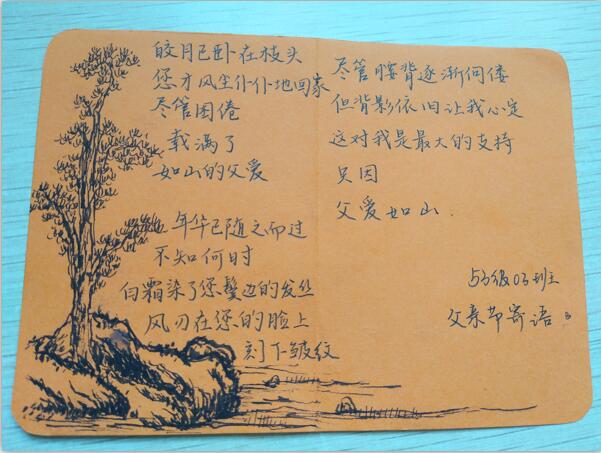 皎月已卧在枝头
您才风尘仆仆地回家
尽管困倦
载满了
如山的父爱
年华已随之而过
不知何时
白霜染了您鬓边的发丝
风刃在您的脸上
刻下皱纹
尽管腰背逐渐佝偻
但背影依旧让我心定
这对我是最大的支持
只因
父爱如山
级03班
父亲节寄语